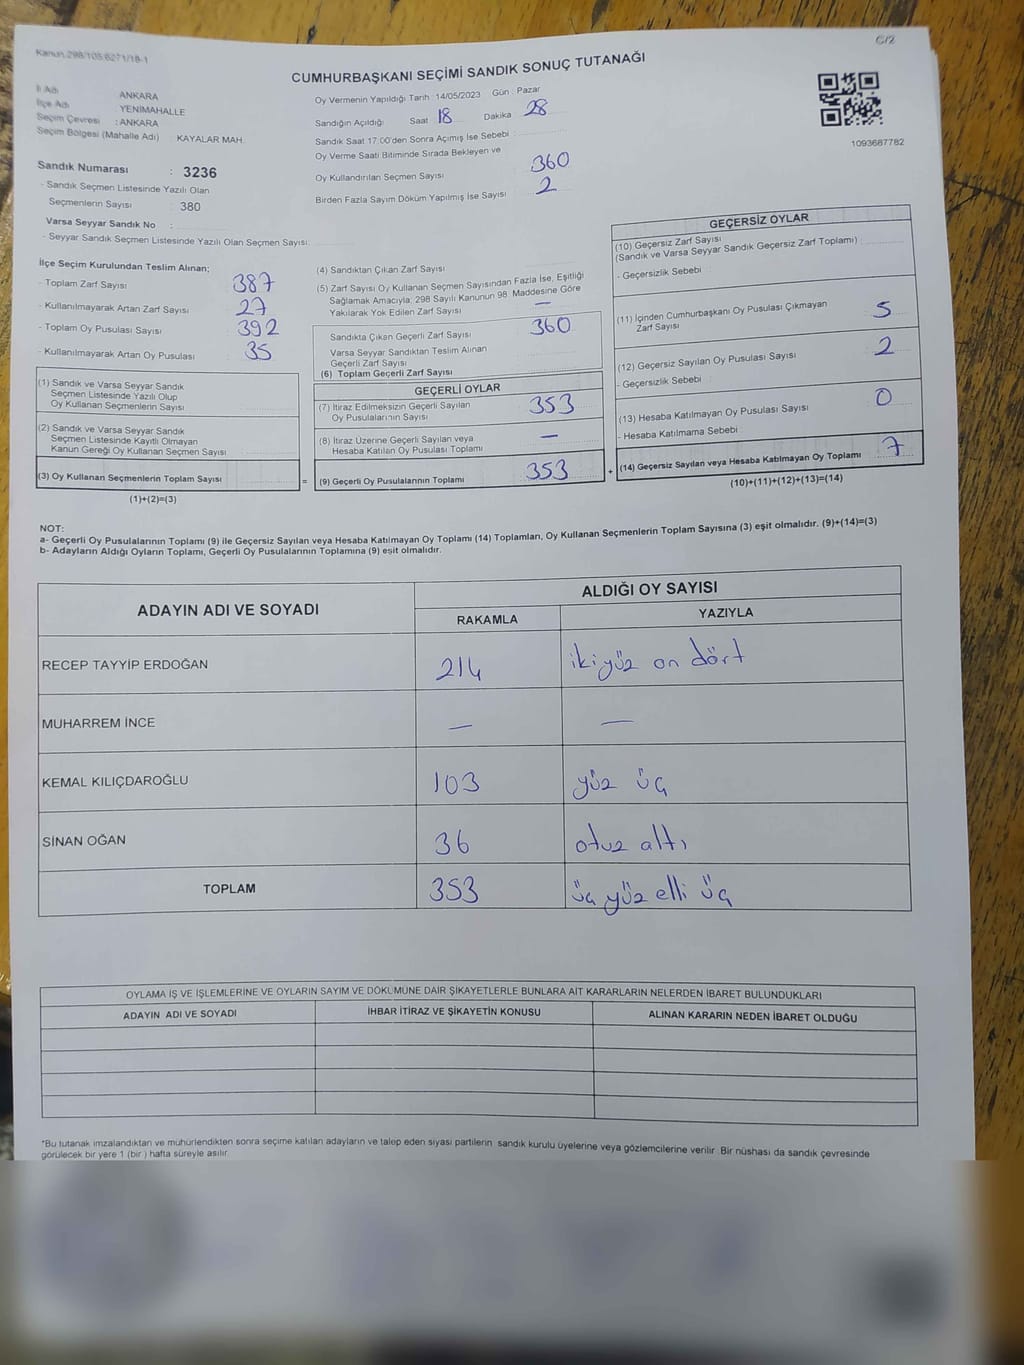 Kanun.298/105;6271/18-1
C/2
CUMHURBAŞKANI SEÇİMİ SANDIK SONUÇ TUTANAĞI
İl Adı ANKARA
İlçe Adı YENİMAHALLE
Seçim Çevresi : ANKARA
Seçim Bölgesi (Mahalle Adı) KAYALAR MAH.
Sandık Numarası : 3236
- Sandık Seçmen Listesinde Yazılı Olan
Seçmenlerin Sayısı : 380
Varsa Seyyar Sandık No :
- Seyyar Sandık Seçmen Listesinde Yazılı Olan Seçmen Sayısı:
Oy Vermenin Yapıldığı Tarih : 14/05/2023 Gün : Pazar
Sandığın Açıldığı Saat 18 Dakika 28
Sandık Saat 17:00'den Sonra Açımış İse Sebebi :
Oy Verme Saati Bitiminde Sırada Bekleyen ve
Oy Kullandırılan Seçmen Sayısı 360
Birden Fazla Sayım Döküm Yapılmış İse Sayısı 2
1093687782
İlçe Seçim Kurulundan Teslim Alınan;
- Toplam Zarf Sayısı : 387
- Kullanılmayarak Artan Zarf Sayısı : 27
- Toplam Oy Pusulası Sayısı : 392
- Kullanılmayarak Artan Oy Pusulası : 35
(1) Sandık ve Varsa Seyyar Sandık
Seçmen Listesinde Yazılı Olup
Oy Kullanan Seçmenlerin Sayısı
(2) Sandık ve Varsa Seyyar Sandık
Seçmen Listesinde Kayıtlı Olmayan
Kanun Gereği Oy Kullanan Seçmen Sayısı
(3) Oy Kullanan Seçmenlerin Toplam Sayısı
(1)+(2)=(3)
=
(4) Sandıktan Çıkan Zarf Sayısı
(5) Zarf Sayısı Oy Kullanan Seçmen Sayısından Fazla İse, Eşitliği
Sağlamak Amacıyla; 298 Sayılı Kanunun 98. Maddesine Göre
Yakılarak Yok Edilen Zarf Sayısı —
Sandıkta Çıkan Geçerli Zarf Sayısı 360
Varsa Seyyar Sandıktan Teslim Alınan
Geçerli Zarf Sayısı
(6) Toplam Geçerli Zarf Sayısı
GEÇERLİ OYLAR
(7) İtiraz Edilmeksizin Geçerli Sayılan
Oy Pusulalarının Sayısı 353
(8) İtiraz Üzerine Geçerli Sayılan veya
Hesaba Katılan Oy Pusulası Toplamı —
(9) Geçerli Oy Pusulalarının Toplamı 353
+
GEÇERSİZ OYLAR
(10) Geçersiz Zarf Sayısı
(Sandık ve Varsa Seyyar Sandık Geçersiz Zarf Toplamı) :
- Geçersizlik Sebebi :
(11) İçinden Cumhurbaşkanı Oy Pusulası Çıkmayan
Zarf Sayısı 5
(12) Geçersiz Sayılan Oy Pusulası Sayısı 2
- Geçersizlik Sebebi :
(13) Hesaba Katılmayan Oy Pusulası Sayısı 0
- Hesaba Katılmama Sebebi :
(14) Geçersiz Sayılan veya Hesaba Katılmayan Oy Toplamı 7
(10)+(11)+(12)+(13)=(14)
NOT:
a- Geçerli Oy Pusulalarının Toplamı (9) ile Geçersiz Sayılan veya Hesaba Katılmayan Oy Toplamı (14) Toplamları, Oy Kullanan Seçmenlerin Toplam Sayısına (3) eşit olmalıdır. (9)+(14)=(3)
b- Adayların Aldığı Oyların Toplamı, Geçerli Oy Pusulalarının Toplamına (9) eşit olmalıdır.
ADAYIN ADI VE SOYADI ALDIĞI OY SAYISI
RAKAMLA YAZIYLA
RECEP TAYYİP ERDOĞAN 214 ikiyüz on dört
MUHARREM İNCE — —
KEMAL KILIÇDAROĞLU 103 yüz üç
SİNAN OĞAN 36 otuz altı
TOPLAM 353 üç yüz elli üç
OYLAMA İŞ VE İŞLEMLERİNE VE OYLARIN SAYIM VE DÖKÜMÜNE DAİR ŞİKAYETLERLE BUNLARA AİT KARARLARIN NELERDEN İBARET BULUNDUKLARI
ADAYIN ADI VE SOYADI İHBAR İTİRAZ VE ŞİKAYETİN KONUSU ALINAN KARARIN NEDEN İBARET OLDUĞU
*Bu tutanak imzalandıktan ve mühürlendikten sonra seçime katılan adayların ve talep eden siyasi partilerin sandık kurulu üyelerine veya gözlemcilerine verilir. Bir nüshası da sandık çevresinde
görülecek bir yere 1 (bir ) hafta süreyle asılır.